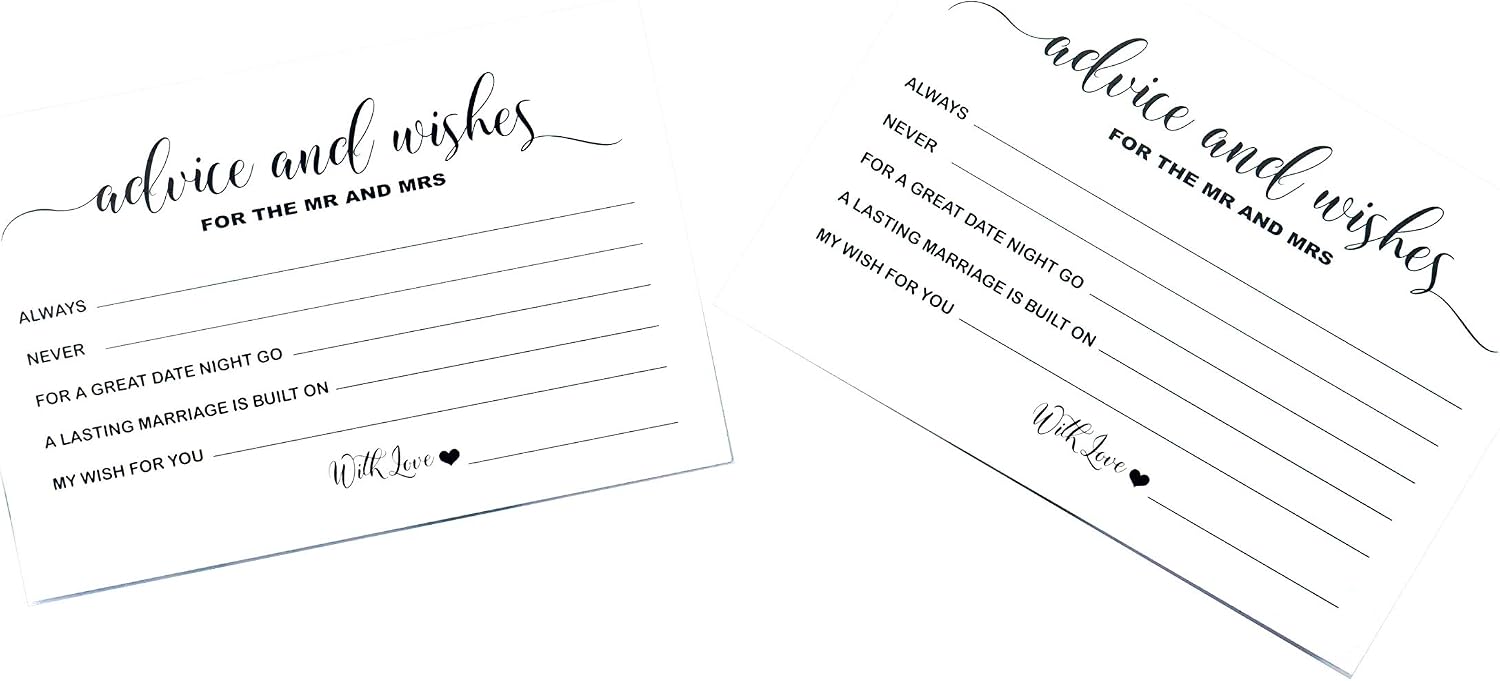 advice and wishes
FOR THE MR AND MRS
ALWAYS
NEVER
FOR A GREAT DATE NIGHT GO
A LASTING MARRIAGE IS BUILT ON
MY WISH FOR YOU
With Love
advice and wishes
FOR THE MR AND MRS
ALWAYS
NEVER
FOR A GREAT DATE NIGHT GO
A LASTING MARRIAGE IS BUILT ON
MY WISH FOR YOU
With Love